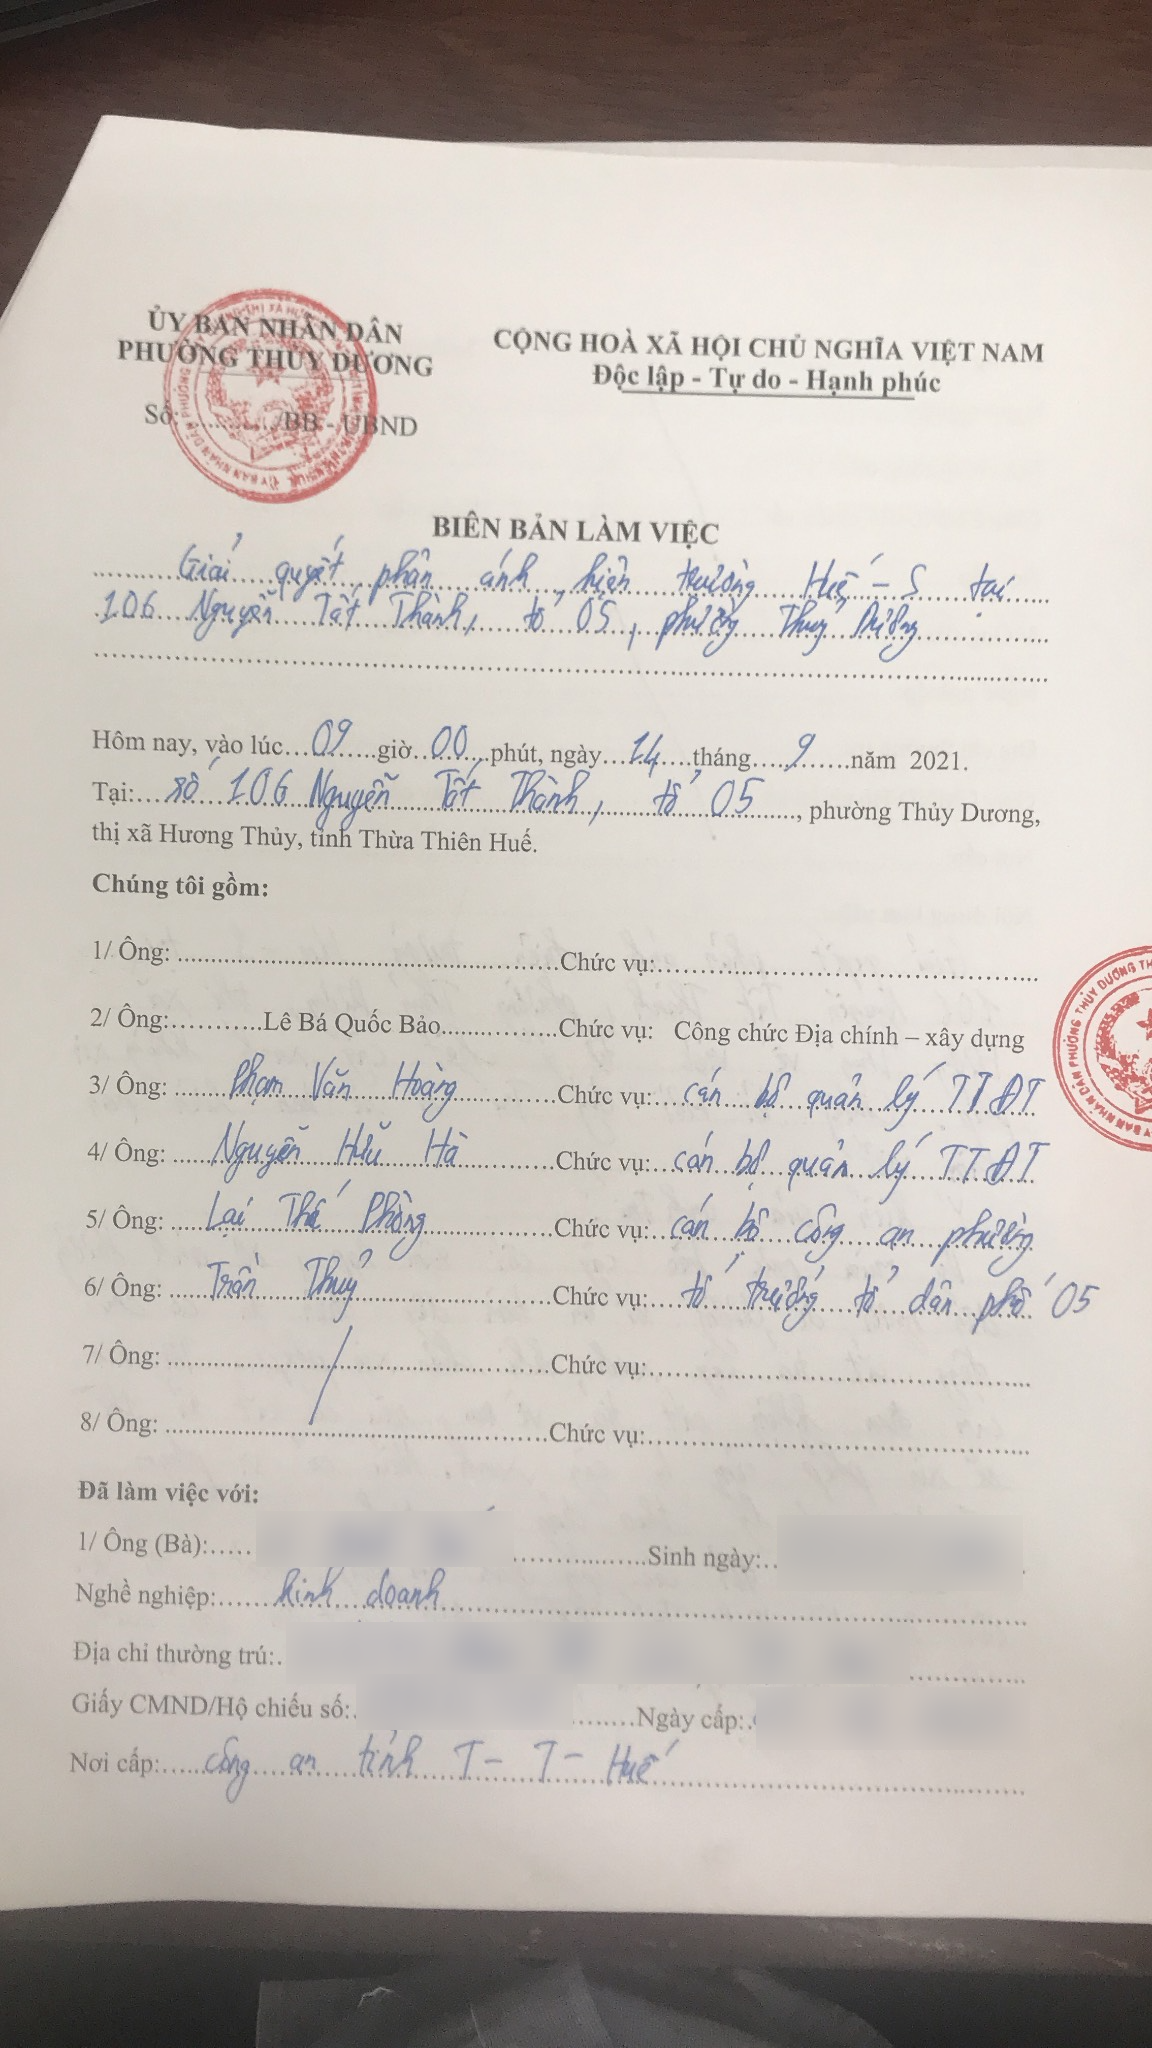 ỦY BAN NHÂN DÂN
PHƯỜNG THỦY DƯƠNG
Số:............./BB - UBND
CỘNG HOÀ XÃ HỘI CHỦ NGHĨA VIỆT NAM
Độc lập - Tự do - Hạnh phúc
BIÊN BẢN LÀM VIỆC
Giải quyết phản ánh hiện trường Huế - S tại
106 Nguyễn Tất Thành, tổ 05, phường Thủy Dương
Hôm nay, vào lúc 09 giờ 00 phút, ngày 14 tháng 9 năm 2021.
Tại: số 106 Nguyễn Tất Thành, tổ 05, phường Thủy Dương,
thị xã Hương Thủy, tỉnh Thừa Thiên Huế.
Chúng tôi gồm:
1/ Ông: ........................ Chức vụ: ........................
2/ Ông: Lê Bá Quốc Bảo Chức vụ: Công chức Địa chính – xây dựng
3/ Ông: Phạm Văn Hoàng Chức vụ: cán bộ quản lý TTĐT
4/ Ông: Nguyễn Hữu Hà Chức vụ: cán bộ quản lý TTĐT
5/ Ông: Lại Thế Phòng Chức vụ: cán bộ công an phường
6/ Ông: Trần Thuỷ Chức vụ: tổ trưởng tổ dân phố 05
7/ Ông: ........................ Chức vụ: ........................
8/ Ông: ........................ Chức vụ: ........................
Đã làm việc với:
1/ Ông (Bà): Sinh ngày:
Nghề nghiệp: kinh doanh
Địa chỉ thường trú:
Giấy CMND/Hộ chiếu số: Ngày cấp:
Nơi cấp: công an tỉnh T - T - Huế